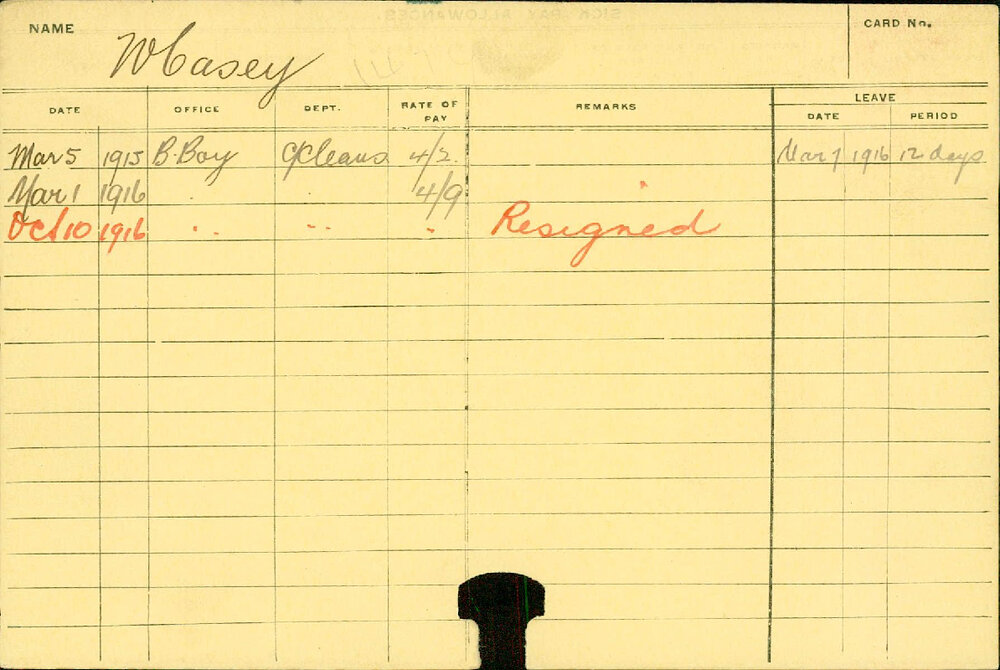 NAME W Casey CARD No.
LEAVE
DATE OFFICE DEPT. RATE OF PAY REMARKS DATE PERIOD
Mar 5 1915 B. Boy 4/2. Mar 7 1916 12 days
Mar 1 1916 . 4/9
Oct 10 1916 .. .. . Resigned